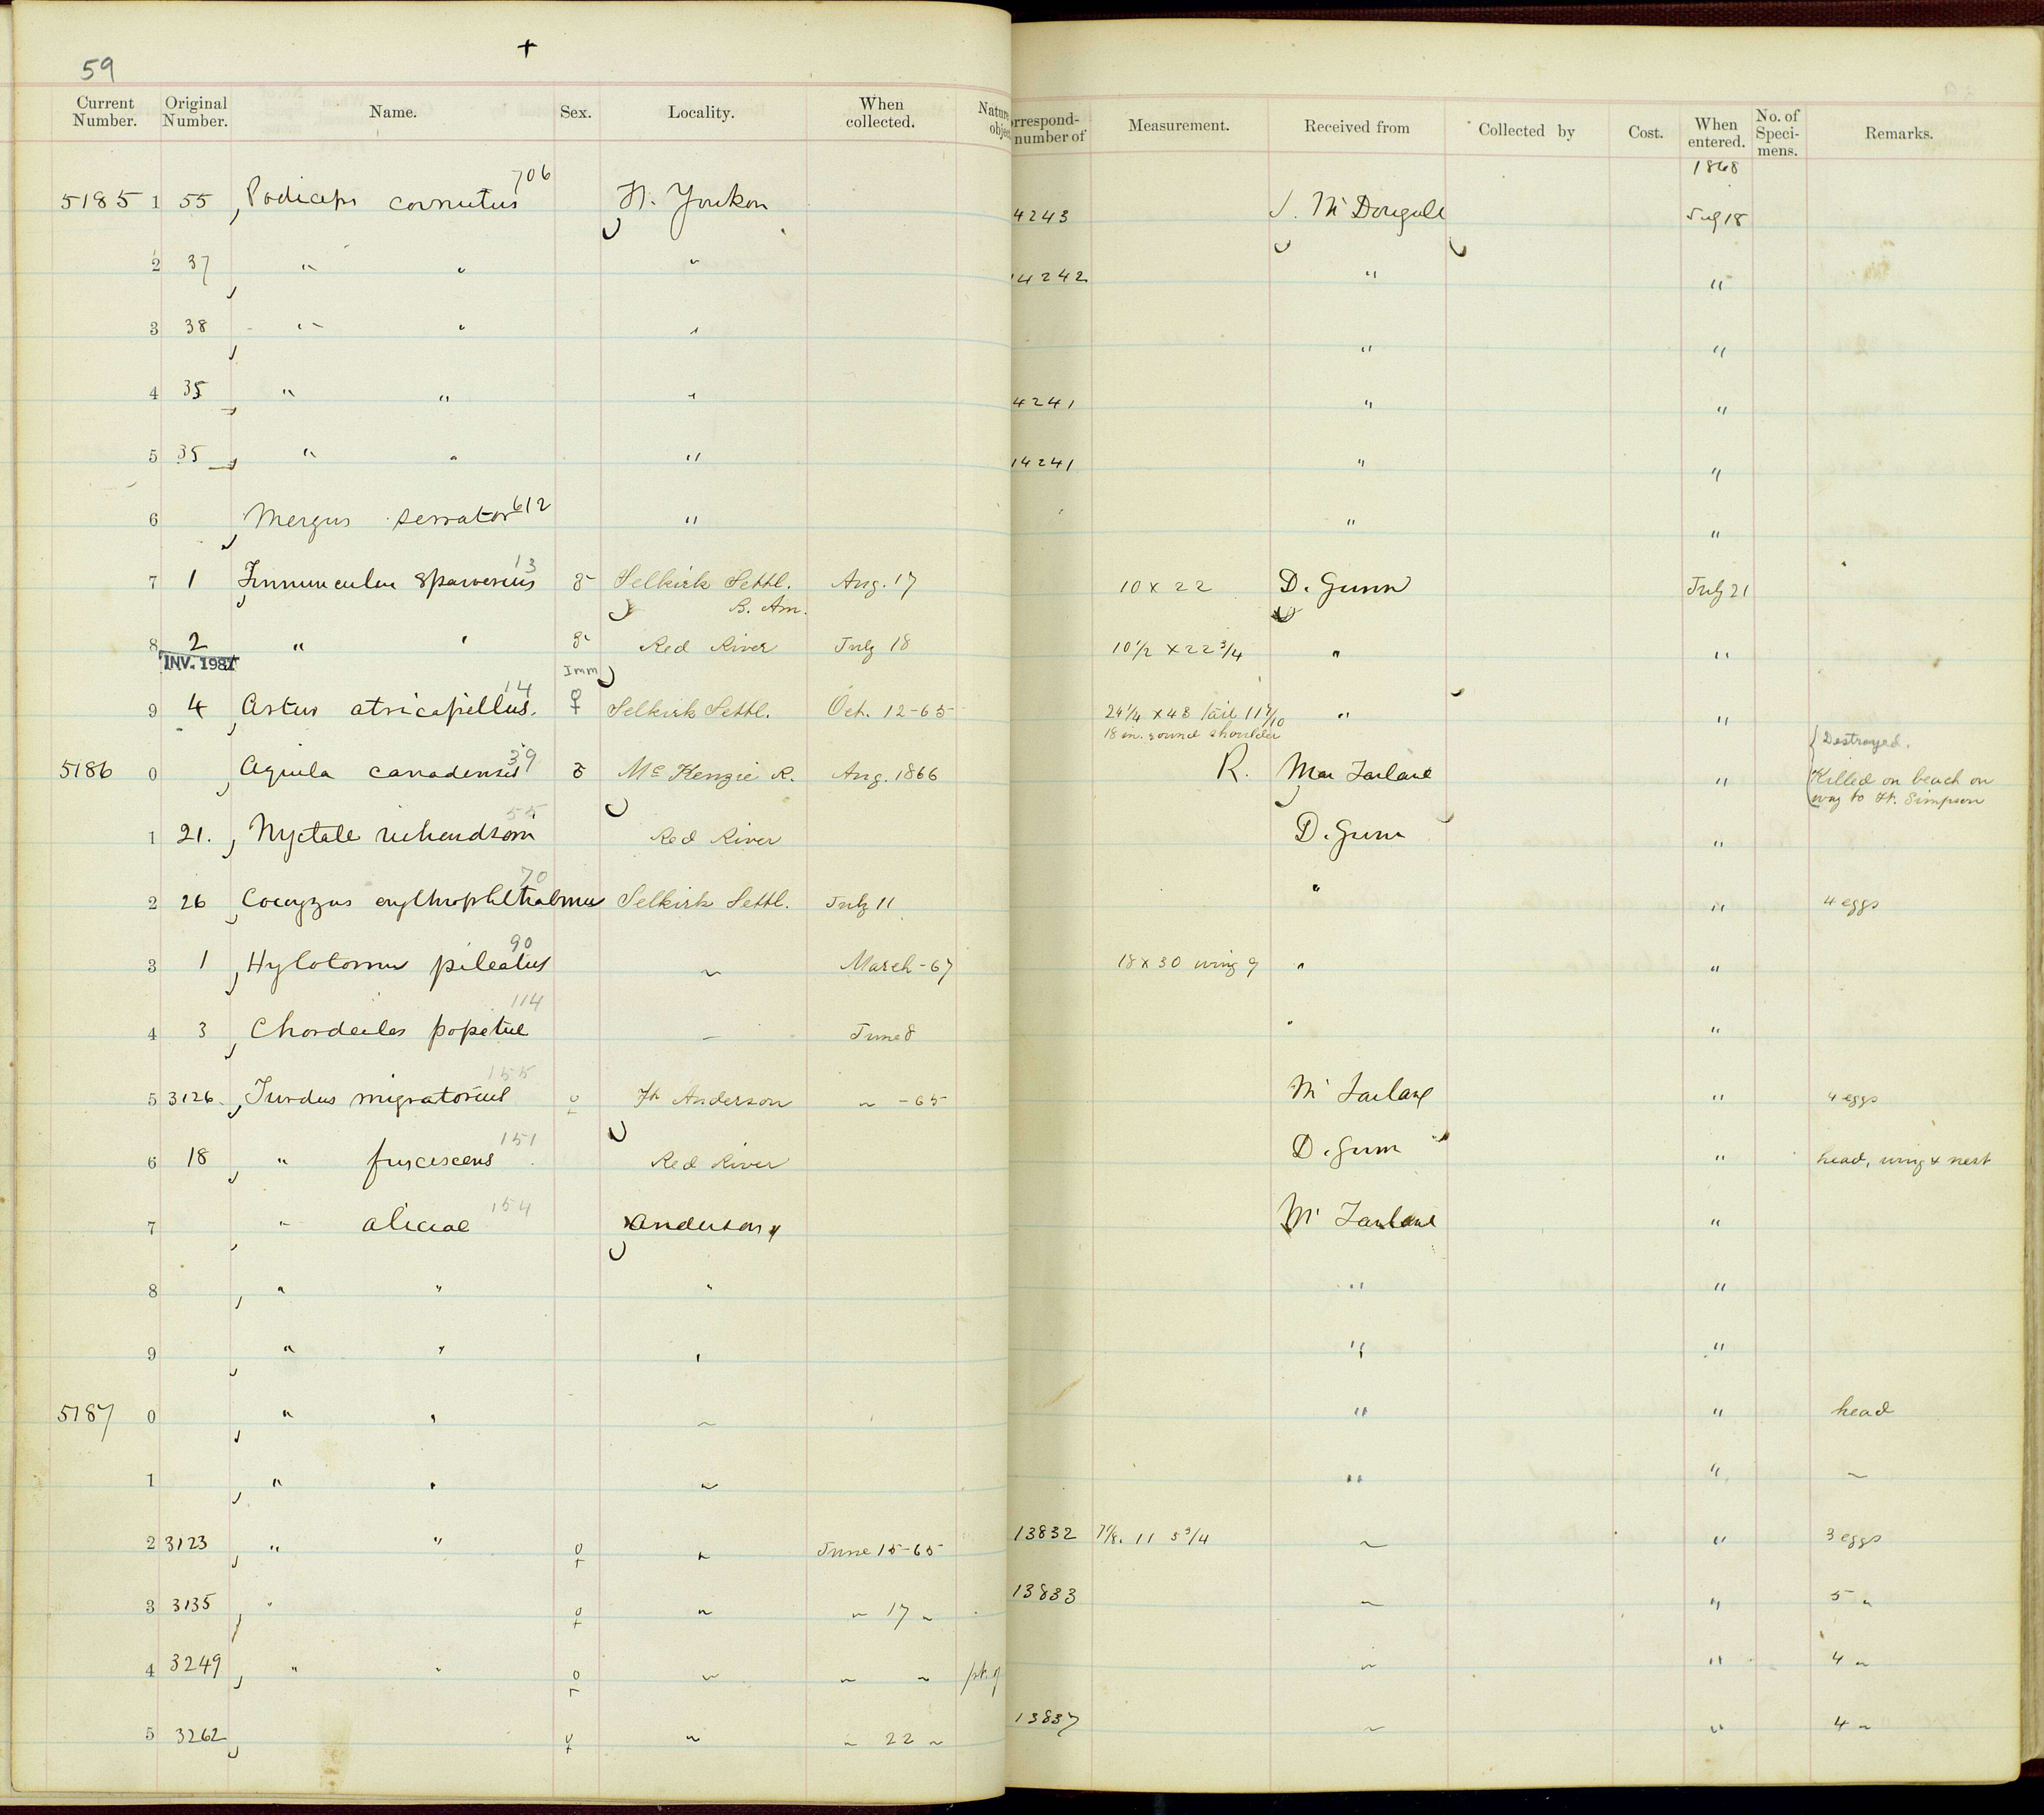 59 +
Current Number. Original Number. Name. Sex. Locality. When collected. Nature obje orrespond- number of Measurement. Received from Collected by Cost. When entered. No. of Speci- mens. Remarks.
706 1868
5185 1 55 Podiceps cornutus Ft. Youkon 4243 J. McDougall July 18
2 37 " " " 14242 " "
3 38 " " " " "
4 35 " " " 4241 " "
5 35 " " " 14241 " "
6 Mergus serrator 612 " " "
13
7 1 Tinnunculus sparverius ♂ Selkirk Settl. Aug. 17 10 x 22 D. Gunn July 21
B. Am.
8 2 " " ♂ Red River July 18 10 1/2 x 22 3/4 " "
INV. 1981 Imm
14
9 4 Astur atricapillus. ♀ Selkirk Settl. Oct. 12-65 24 1/4 x 48 tail 11 " "
18 in. round shoulder
39 Destroyed.
5186 0 Aquila canadensis ♂ Mc Kenzie R. Aug. 1866 R. MacFarlane " Killed on beach on
way to Ft. Simpson
55
1 21. Nyctale richardsoni Red River D. Gunn "
70
2 26 Coccyzus erythrophthalmus Selkirk Settl. July 11 " " 4 eggs
90
3 1 Hylotomus pileatus " March-67 18 x 30 wing 9 " "
114
4 3 Chordeiles popetue " June 8 " "
155
5 3126 Turdus migratorius ♀ Ft Anderson " -65 McFarlane " 4 eggs
151
6 18 " fuscescens Red River D. Gunn " head, wing & nest
154
7 " aliciae Anderson McFarlane "
8 " " " " "
9 " " " " "
5187 0 " " " " " head
1 " " " " " "
2 3123 " " ♀ " June 15-65 13832 7 1/8. 11 3 3/4 " " 3 eggs
3 3135 " ♀ " " 17 " 13833 " " 5 "
4 3249 " " ♀ " " " pt. of " " 4 "
5 3262 ♀ " " 22 " 13837 " " 4 "